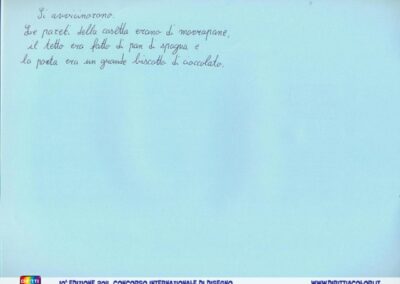 Si avvicinarono.
Le pareti della casetta erano di marzapane,
il tetto era fatto di pan di spagna e
la porta era un grande biscotto di cioccolato.
10ª EDIZIONE 2011 CONCORSO INTERNAZIONALE DI DISEGNO
WWW.DIRITTIACOLORI.IT